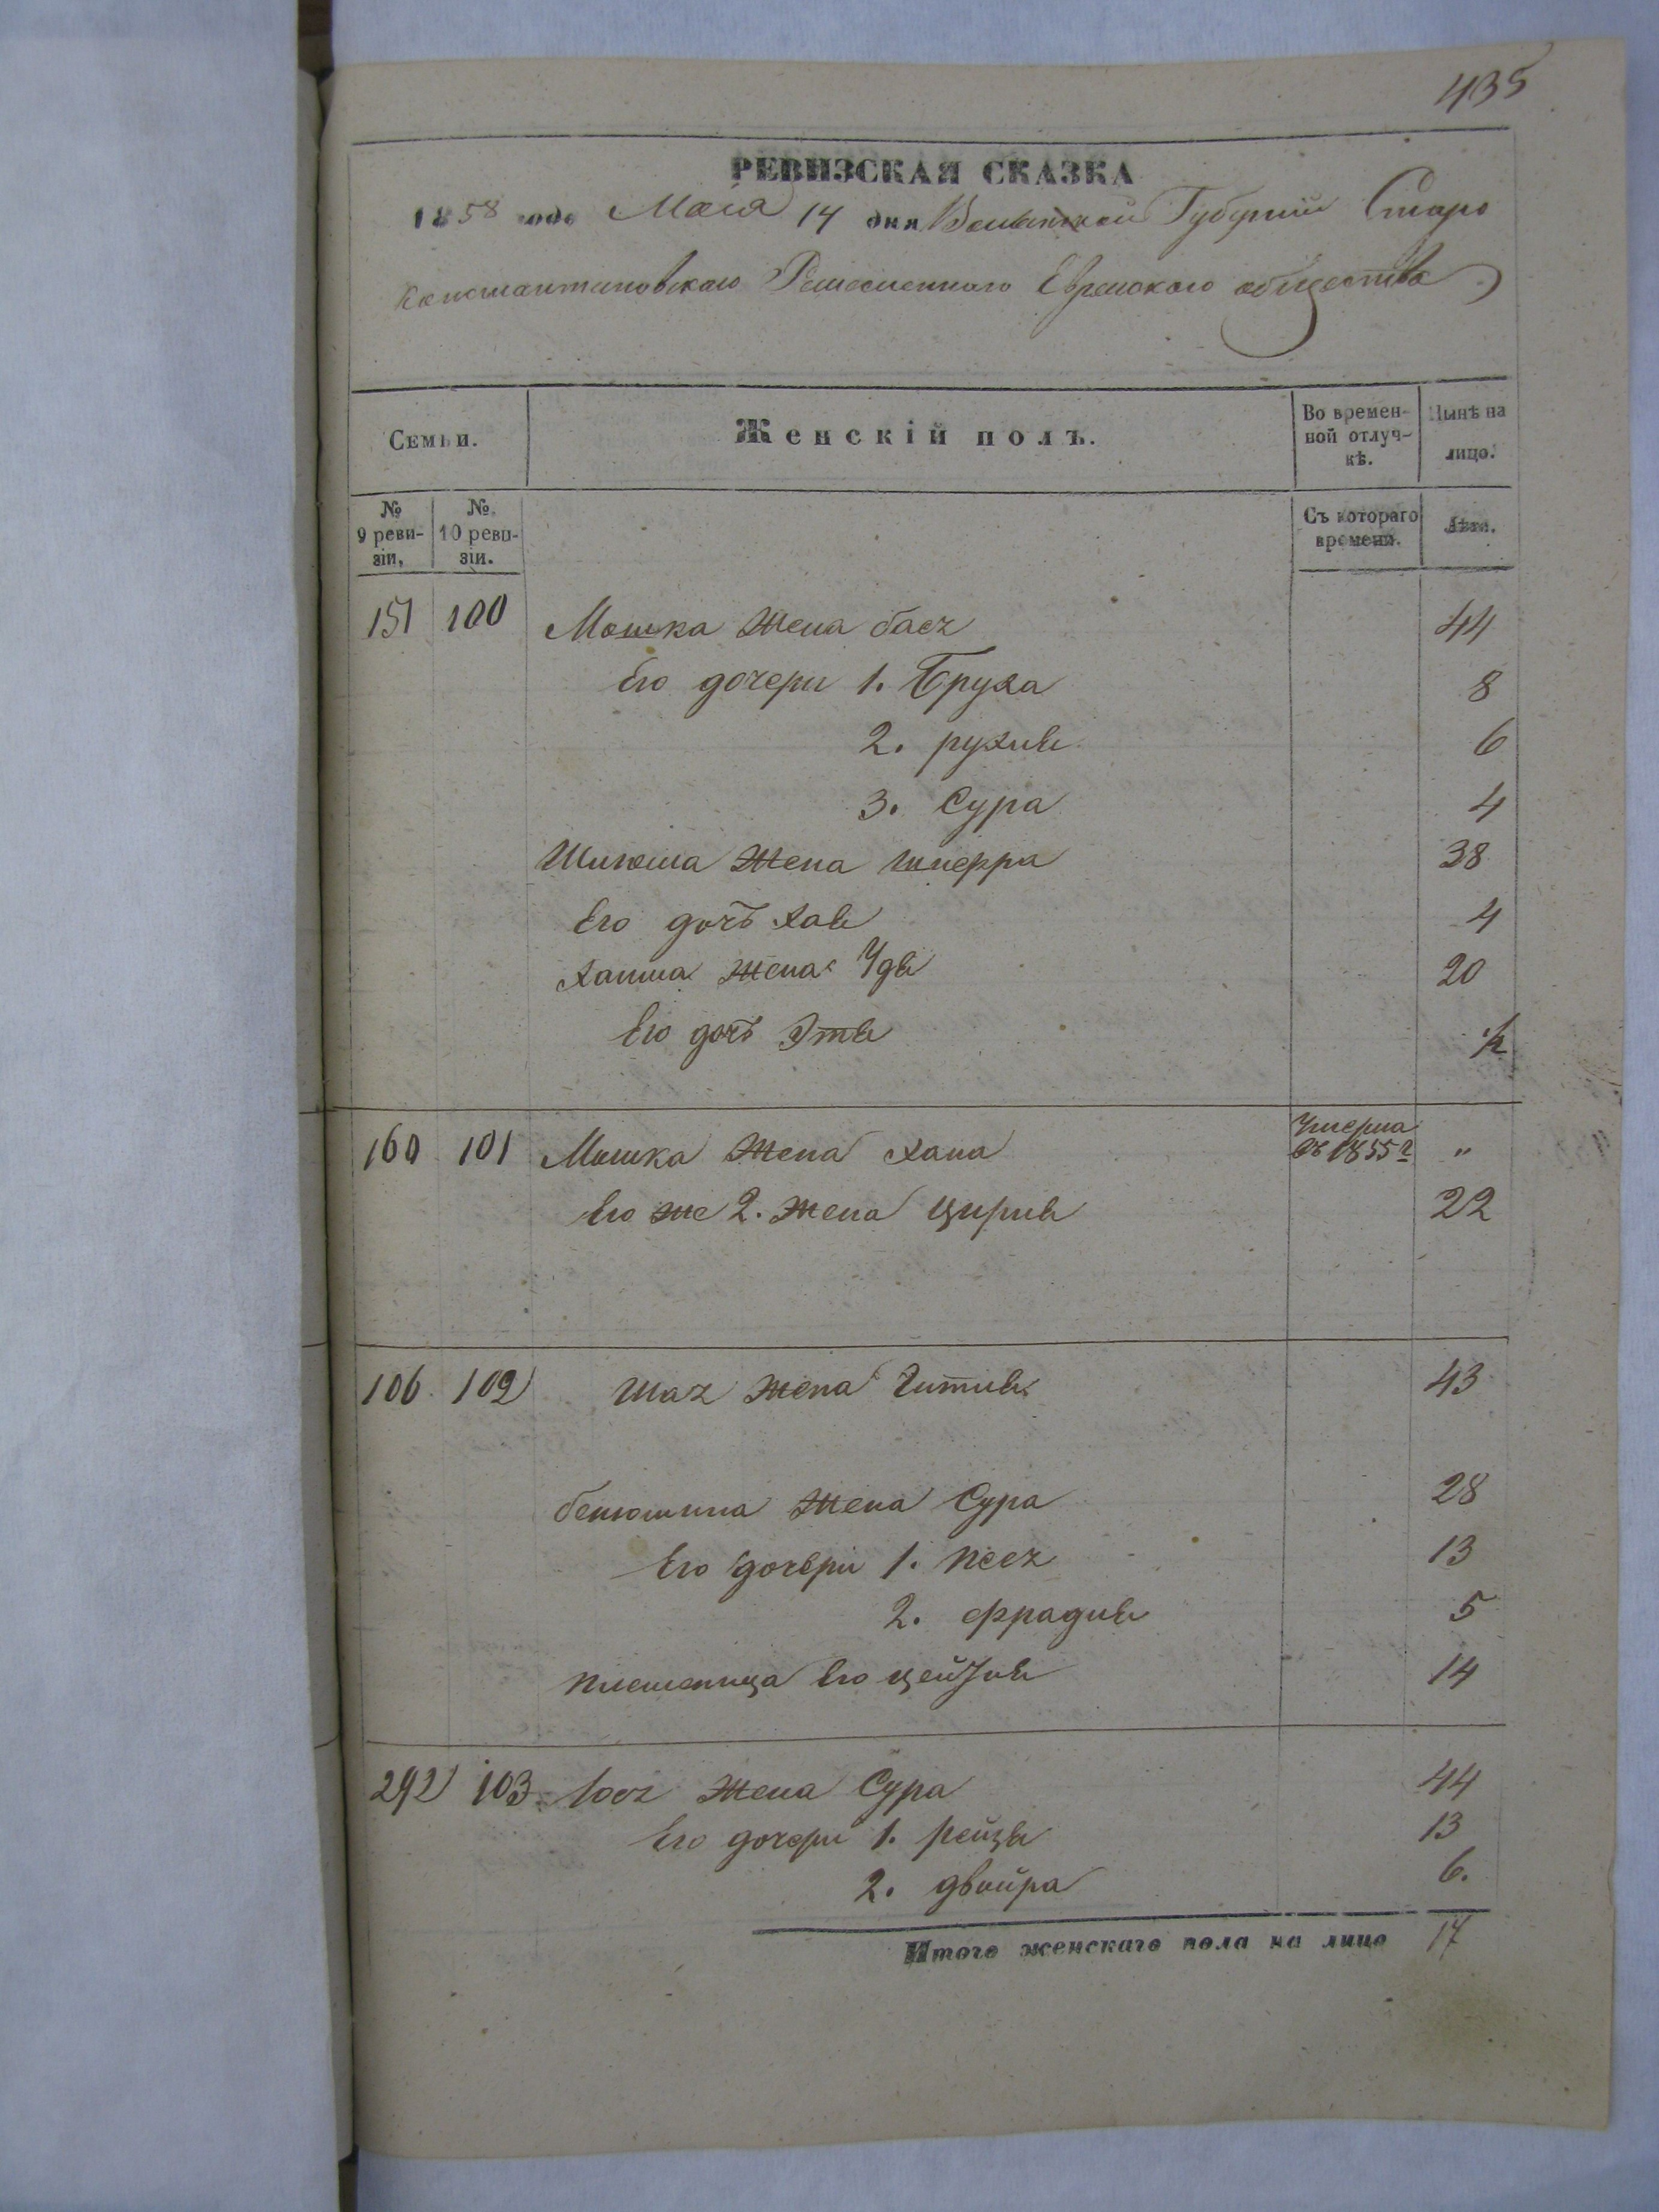 435
РЕВИЗСКАЯ СКАЗКА
1858 года Мая 14 дня Волынской Губернии Старо
константиновскаго Ремесленнаго Еврейскаго общества
Семьи.
Женскій полъ.
Во времен-
ной отлуч-
кѣ.
Нынѣ на
лицо.
№
9 реви-
зіи.
№
10 реви-
зіи.
Съ котораго
времени.
Лѣта.
151 100 Мошка Жена бася 44
Его дочери 1. Бруха 8
2. рухля 6
3. Сура 4
Шлюма Жена шперра 38
Его дочъ хая 4
Хаима Жена Удя 20
Его дочъ Этя ½
160 101 Мошка Жена хана Умерла въ 1855 г. "
Его же 2. Жена Цирля 22
106 102 Жена Гитля 43
бенюмина Жена Сура 28
Его дочери 1. песя 13
2. фрадля 5
племенница Его цейтля 14
292 103 Жена Сура 44
Его дочери 1. рейзя 13
2. двойра 6.
Итого женскаго пола на лицо 17